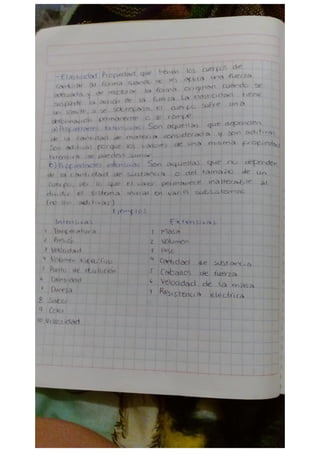 - Elasticidad: Propiedad que tienen los cuerpos de
cambiar su forma cuando se les aplica una fuerza
adecuada y de recobrar la forma original cuando se
suspende la acción de la fuerza. La elasticidad tiene
un límite, si se sobrepasa el cuerpo sufre una
deformación permanente o se rompe.
a) Propiedades Extensivas: Son aquellas que dependen
de la cantidad de materia considerada y son aditivas
Son aditivas porque los valores de una misma propiedad
Extensiva se pueden sumar.
b) Propiedades intensivas: Son aquellas que no dependen
de la cantidad de sustancia o del tamaño de un
cuerpo, por lo que el valor permanece inalterable al
dividir el sistema inicial en varios subsistemas
(no son aditivas)
Ejemplos
Intensivas Extensivas
1 Temperatura 1 Masa
2 2 Volumen
3 Velocidad 3 Peso
4 Volumen específico 4 Cantidad de sustancia
5 Punto de ebullición 5 Caballos de fuerza
6 Densidad 6 Velocidad de la masa
7 Dureza 7 Resistencia eléctrica
8 Sabor
9 Color
10 Viscosidad